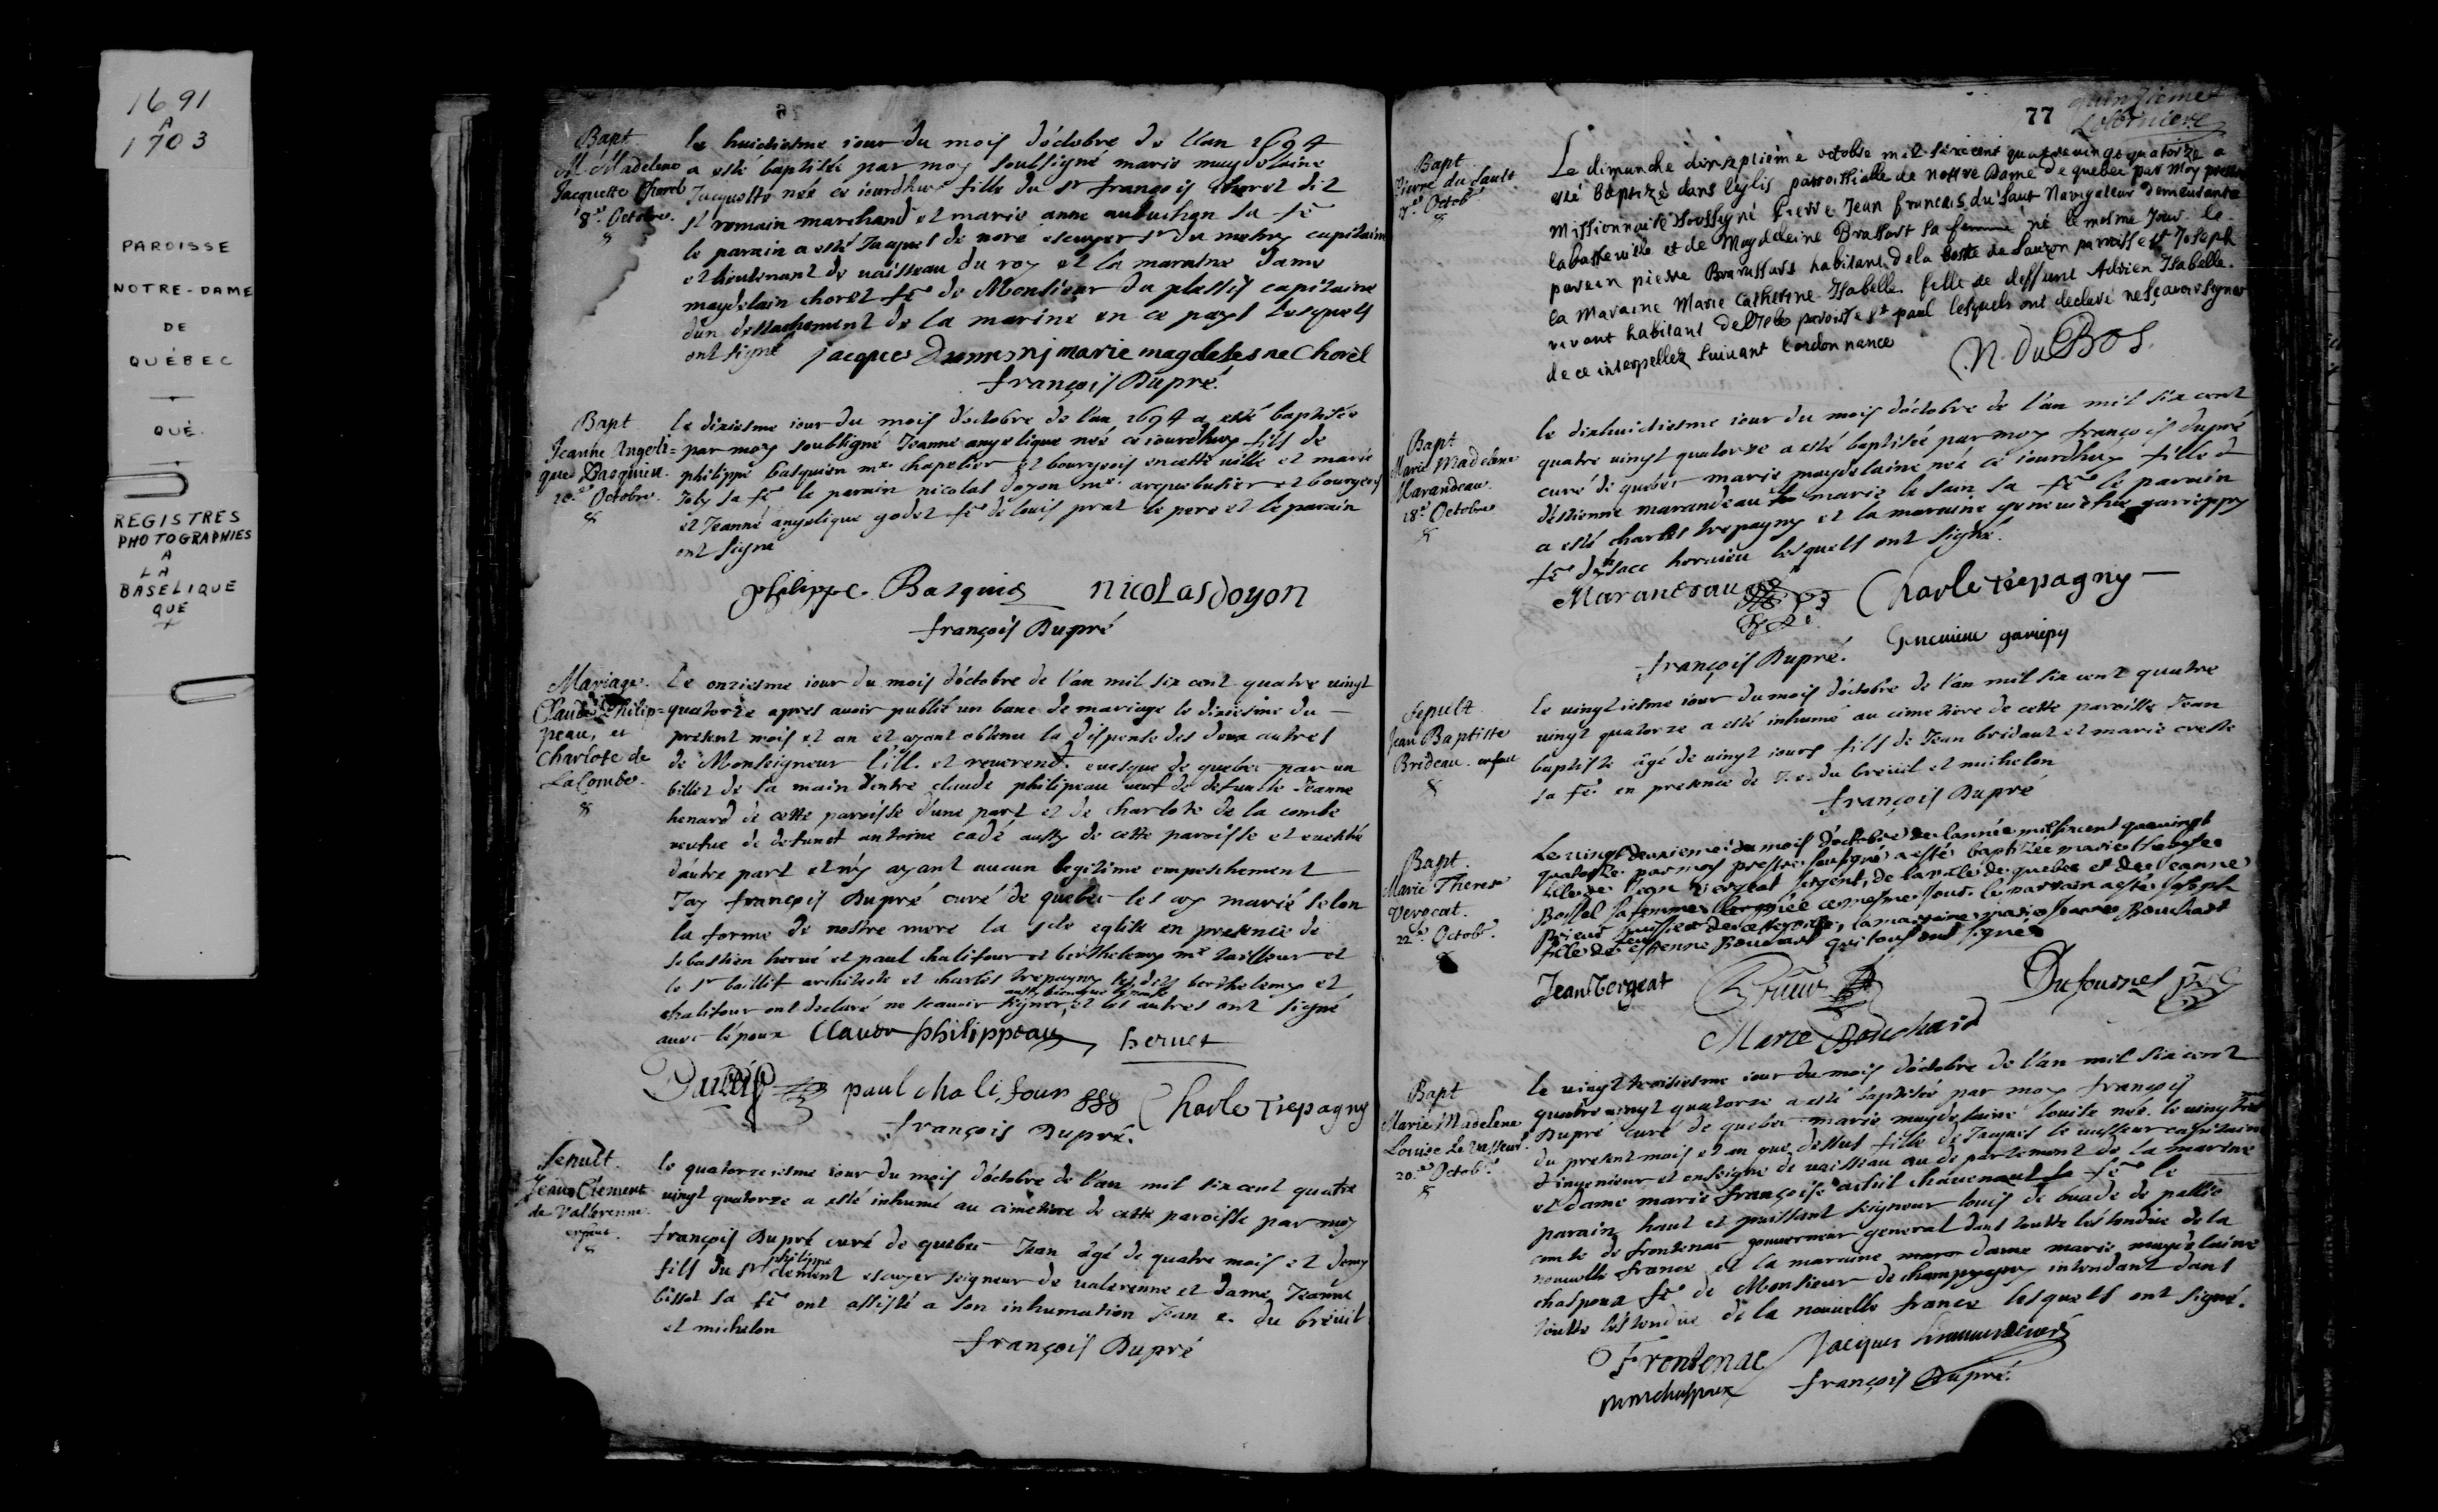 1691
A
1703
PAROISSE
NOTRE-DAME
DE
QUÉBEC
QUÉ.
REGISTRES
PHOTOGRAPHIES
A
LA
BASELIQUE
QUE
Bapt
M. Madelene
Jacquette Chorel
8.e Octobre.
le huictiesme iour du mois d'octobre de l'an 1694
a esté baptisée par moy soussigné marie magdelaine
Jacquette née ce iourdhuy fille du Sr françois Choret dit
St romain marchand et marie anne aubuchon sa fe
le parain a esté Jacques de noré escuyer Sr du mesny capitaine
et lieutenant de vaisseau du roy et la maraine dame
magdelain choret fe de Monsieur du plessis capitaine
d'un destachement de la marine en ce pays lesquels
ont signé jacques Dumesnj marie magdelesne Chorel
françois Dupré.
Bapt
Jeanne Angeli=
que Basquien.
10.e Octobre.
le dixiesme iour du mois d'octobre de l'an 1694 a esté baptisée
par moy soubsigné Jeanne angelique née ce iourdhuy fils de
philippe basquien me chapelier et bourgeois en cette ville et marie
Joly sa fe le parain nicolas doyon me arquebusier et bourgeois
et Jeanne angelique godet fe de louis prat le pere et le parain
ont signe
philippe Basquin nicolas doyon
françois Dupré
Mariage.
Claude Philip=
peau, et
Charlote de
LaCombe.
Le onziesme iour du mois d'octobre de l'an mil six cent quatre vingt
quatorze apres avoir publié un banc de mariage le dixiesme du
present mois et an et ayant obtenu la dispense des deux autres
de Monseigneur l'ill. et reverend. evesque de quebec par un
billet de sa main d'entre claude philipeau veuf de defuncte Jeanne
henard de cette paroisse d'une part et de charlote de la combe
veufve de defunct antoine cadé aussy de cette paroisse et
d'autre part et n'y ayant aucun legitime empeschement
Jay françois Dupré curé de quebec les ay marié selon
la forme de nostre mere la Ste eglise en presence de
sebastien hervé et paul chalifour et berthelemy me tailleur et
le Sr baillif architecte et charles trepagny les dits berthelemy et
chalifour ont declaré ne scavoir signer, aussy bien que l'epouse et les autres ont signé
avec l'epoux Claude philippeau hervet
paul chalifour Charle Trepagny
françois Dupré.
Sepult.
Jean Clement
de Vallerenne.
enfant.
le quatorziesme iour du mois d'octobre de l'an mil six cent quatre
vingt quatorze a esté inhumé au cimetiere de cette paroisse par moy
françois Dupré curé de quebec Jean âgé de quatre mois et demy
fils du Sr philippe clement escuyer seigneur de valerenne et dame Jeanne
bissot sa fe ont assisté a son inhumation Jean e. du breüil
et michelon
françois Dupré
77
Bapt
Pierre du Sault.
17.e Octob.
Le dimanche dixseptieme octobre mil sixcent quatrevingt quatorze a
esté baptizé dans leglis paroissialle de nottre Dame de quebec par moy prestre
missionnaire Soussigné Pierre Jean francois du Saut Navigateur demeurante
labasseville et de Magdeleine Brassart sa femme né le mesme jour. le
parein pierre Brarassart habitant dela coste de Lauzon paroisse St Joseph
la Maraine Marie Catherine Isabelle fille de deffunt Adrien Isabelle.
vivant habitant de paroisse St paul lesquels ont declaré ne sçavoir signer
de ce interpellez suivant lordonnance
N. Du Bos.
Bapt
Marie Madelene
Marandeau.
18.e Octobre
le dixhuictiesme iour du mois d'octobre de l'an mil six cent
quatre vingt quatorze a esté baptisée par moy françois dupré
curé de quebec marie magdelaine née ce iourdhuy fille d
d'estienne marandeau et marie le sain sa fe le parain
a esté charles trepagny et la maraine genevieve gariepy
fe d'Isacc hornieu lesquels ont signé.
Marandeau Charle Trepagny
Genevieve gariepy
françois Dupré.
Sepult
Jean Baptiste
Brideau. enfant
le vingtiesme iour du mois d'octobre de l'an mil six cent quatre
vingt quatorze a esté inhumé au cimetiere de cette paroisse Jean
baptiste âgé de vingt iours fils de Jean bridaut et marie creste
sa fe en presence de J. e. du breüil et michelon
françois Dupré
Bapt.
Marie Therese
Vergeat.
22.e Octob.
Le vingt deuxieme du mois d'octobre de l'année mil sixcent quavingt
quatorze par moy prestre soussigné a esté baptizée marie therese
fille de Jean Vergeat sergent, de la ville de quebec et de Jeanne
Bossel sa femme née ce mesme jour. le parrain a esté Joseph
Prieur huissier la marraine marie Jeanne Bouchart
fille de feu Estienne Bouchart qui tous ont signes
Jean Vergeat Prieur Dufournel
Marie Bouchard
Bapt
Marie Madelene
Louise Le Vasseur.
20.e Octob.
le vingt troisiesme iour du mois d'octobre de l'an mil six cent
quatre vingt quatorze a esté baptisée par moy françois
Dupré curé de quebec marie magdelaine louise née le vingt
du present mois et an que dessus fille de Jacques le vasseur capitaine
d'ingenieur et enseigne de vaisseau au departement de la marine
et dame marie françoise chavenaut sa fe le
parain haut et puissant seigneur louis de buade de pallio
comte de frontenac gouverneur general dans toutte l'estendue de la
nouvelle france et la maraine dame marie magdelaine
chaspoux fe de Monsieur de champigny intendant dans
toutte l'estendue de la nouvelle france lesquels ont signé.
Frontenac
françois Dupré.